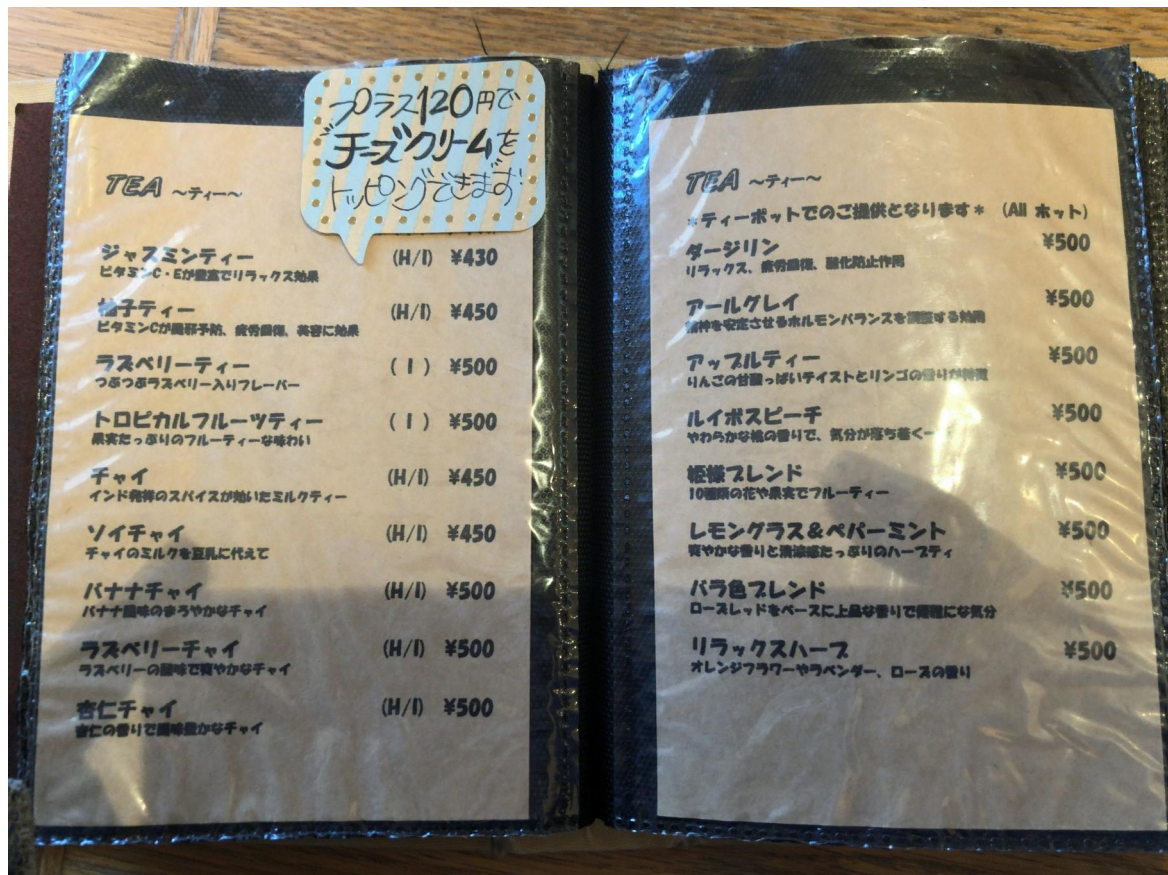 プラス120円で
チーズクリームを
トッピングできます
TEA ～ティー～
ジャスミンティー (H/I) ¥430
ビタミンC・Eが豊富でリラックス効果
柚子ティー (H/I) ¥450
ビタミンCが風邪予防、疲労回復、美容に効果
ラズベリーティー ( I ) ¥500
つぶつぶラズベリー入りフレーバー
トロピカルフルーツティー ( I ) ¥500
果実たっぷりのフルーティーな味わい
チャイ (H/I) ¥450
インド発祥のスパイスが効いたミルクティー
ソイチャイ (H/I) ¥450
チャイのミルクを豆乳に代えて
バナナチャイ (H/I) ¥500
バナナ風味のまろやかなチャイ
ラズベリーチャイ (H/I) ¥500
ラズベリーの酸味で爽やかなチャイ
杏仁チャイ (H/I) ¥500
杏仁の香りで風味豊かなチャイ
TEA ～ティー～
＊ティーポットでのご提供となります＊ (All ホット)
ダージリン ¥500
リラックス、疲労回復、酸化防止作用
アールグレイ ¥500
精神を安定させるホルモンバランスを調整する効用
アップルティー ¥500
りんごの甘酸っぱいテイストとリンゴの香りが特徴
ルイボスピーチ ¥500
やわらかな桃の香りで、気分が落ち着く
姫様ブレンド ¥500
10種類の花や果実でフルーティー
レモングラス＆ペパーミント ¥500
爽やかな香りと清涼感たっぷりのハーブティ
バラ色ブレンド ¥500
ローズレッドをベースに上品な香りで優雅にな気分
リラックスハーブ ¥500
オレンジフラワーやラベンダー、ローズの香り